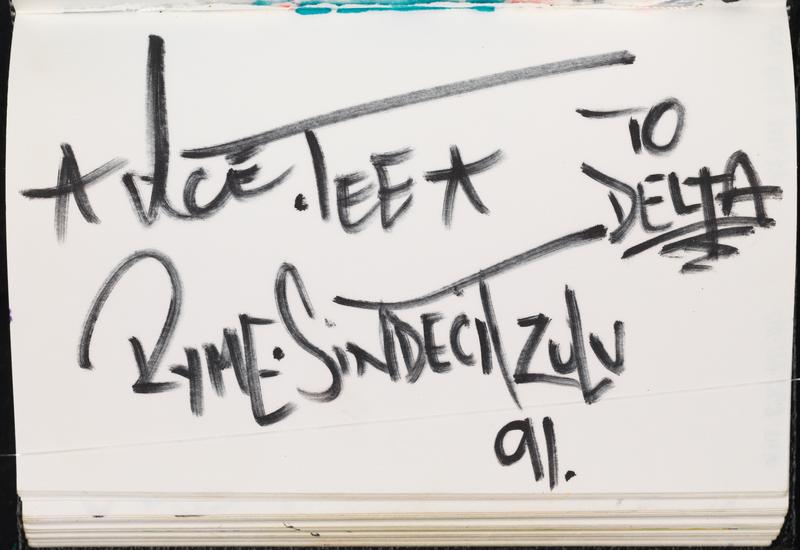 ★ ICE.TEE ★
TO
DELTA
RYME.SINDECIT ZULU
91.